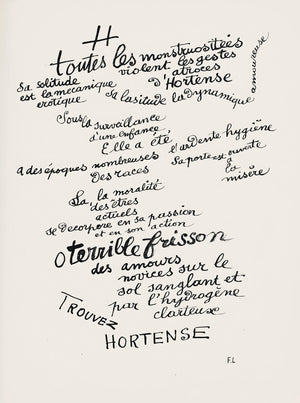 H
toutes les monstruosités
violent les gestes
d'atroces
d'Hortense
Sa solitude
est la mécanique
érotique
Sa lasitude la dynamique
amoureuse
Sous la surveillance
d'une enfance
Elle a été,
a des époques nombreuses
l'ardente hygiène
Des races
Sa porte est ouverte
à
la
misère
La, la moralité
des êtres
actuels
se Décorpore en sa passion
et en son action
O terrible frisson
des amours
novices sur le
sol sanglant et
par l'hydrogène
clarteux
TROUVEZ
HORTENSE
F.L